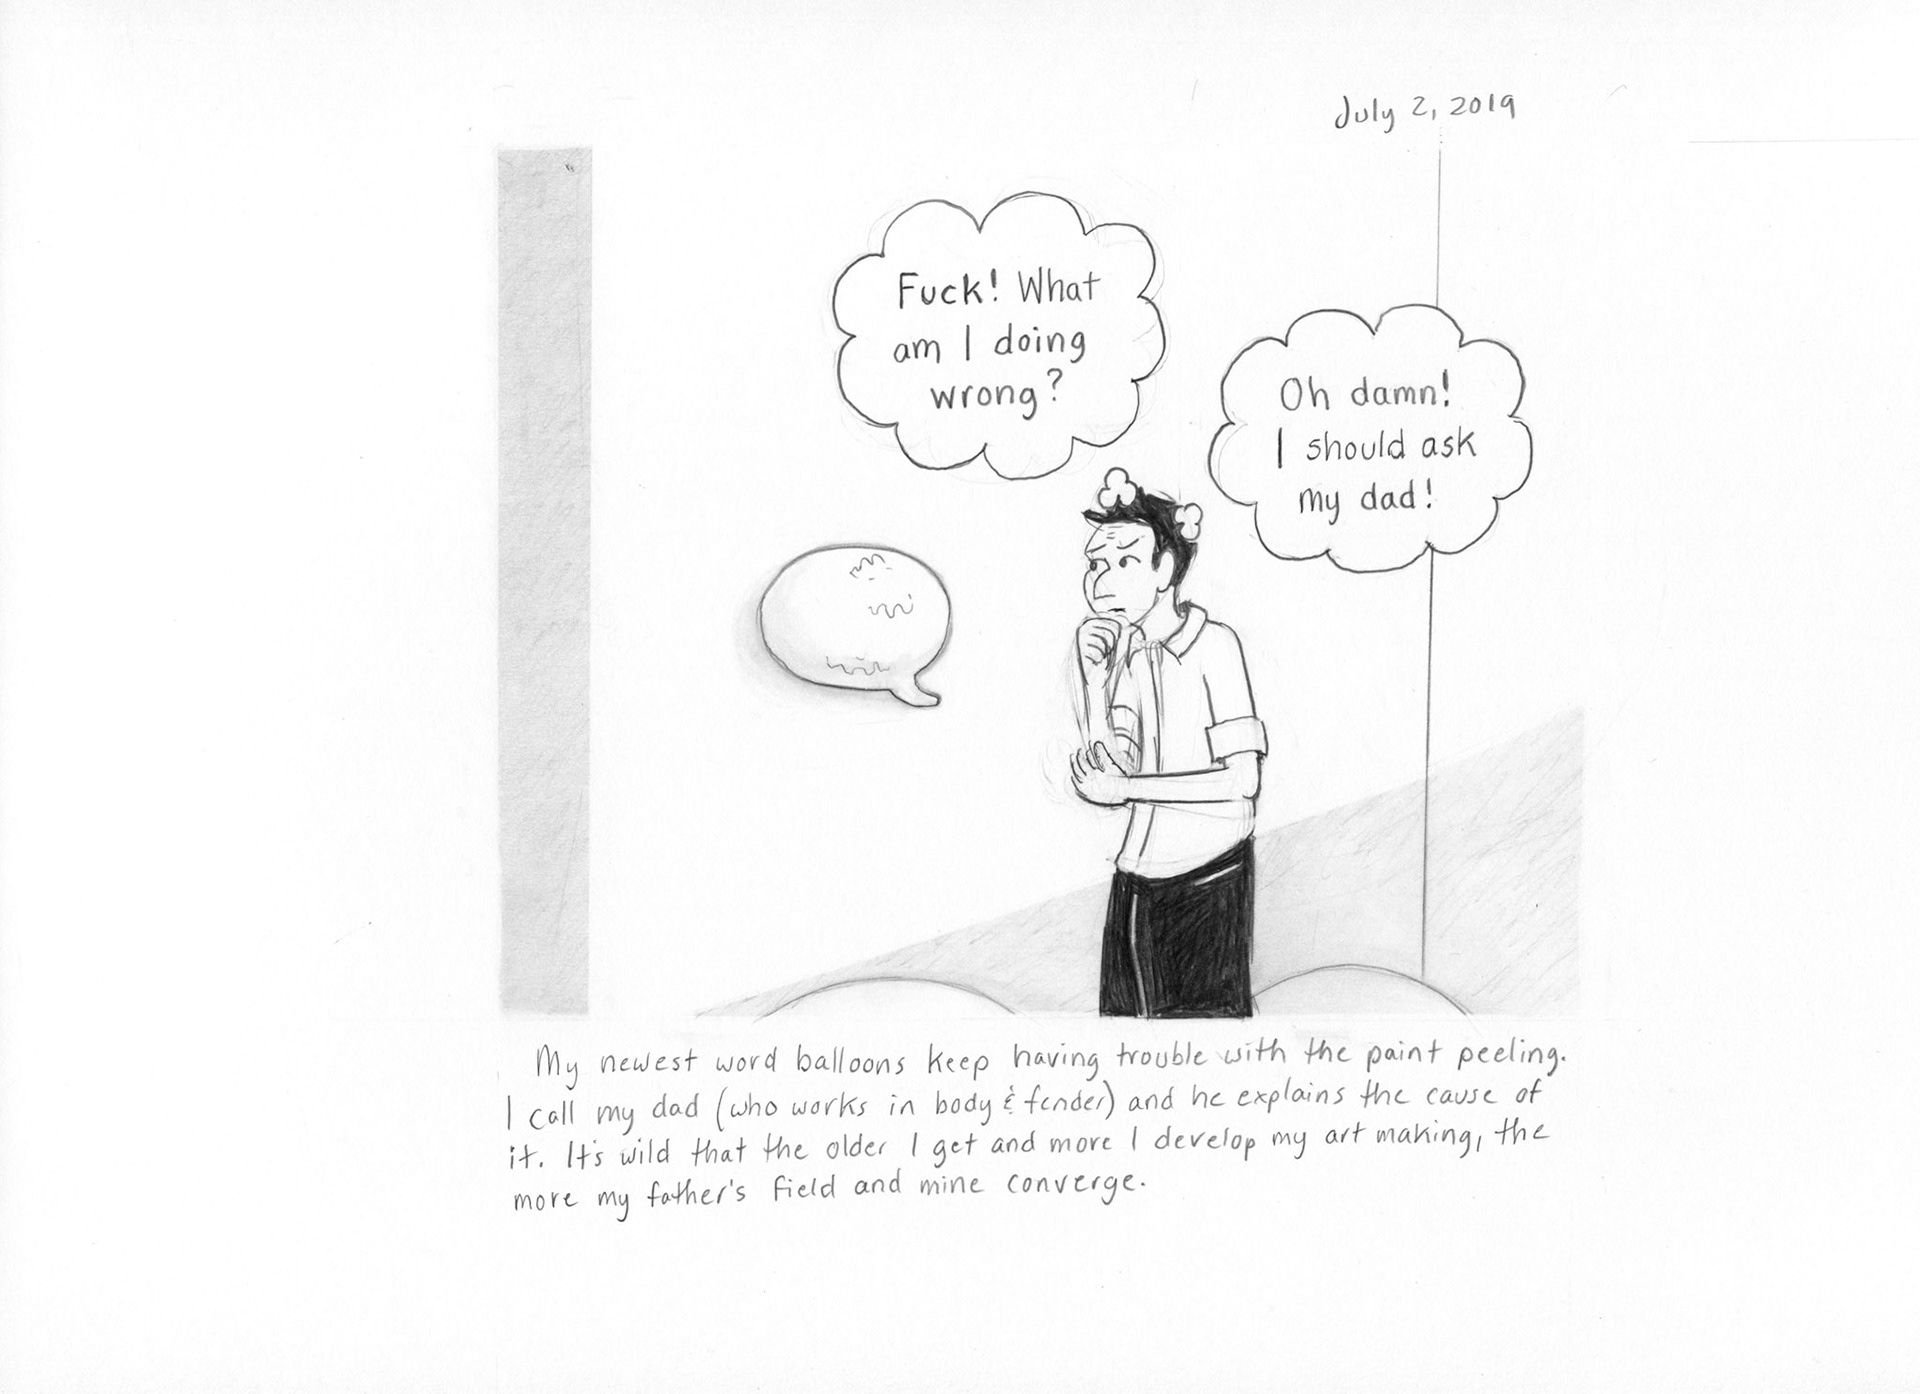 July 2, 2019
Fuck! What
am I doing
wrong?
Oh damn!
I should ask
my dad!
My newest word balloons keep having trouble with the paint peeling.
I call my dad (who works in body & fender) and he explains the cause of
it. It's wild that the older I get and more I develop my art making, the
more my father's field and mine converge.